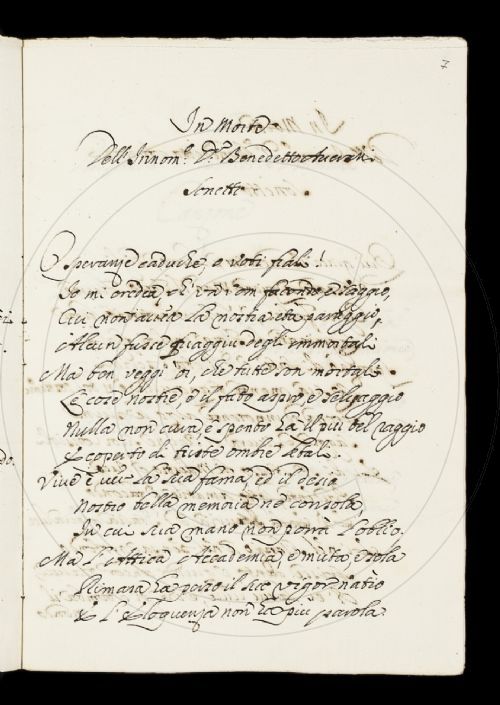 7
In Morte
Dell' Innom.º D.r Benedetto Averani
Sonetto
O speranze caduche, o voti frali!
Io mi credea, ch' un uom facondo, e saggio,
Cui non avea la nostra età paraggio,
Alcun fusse quaggiù degli immortali
Ma ben veggi' io, che tutte son mortali
Le cose nostre, e il fato aspro, e selvaggio
Nulla non cura, e spento ha il più bel raggio
E coperto di triste ombre letali.
Vive è ver la sua fama, ed il desio
Nostro bella memoria ne consola,
In cui sua mano non porrà l' oblio.
Ma l' Attica Accademia, e muta, e sola
Rimasa ha perso il suo vigor natio
E l' Eloquenza non ha più parola.